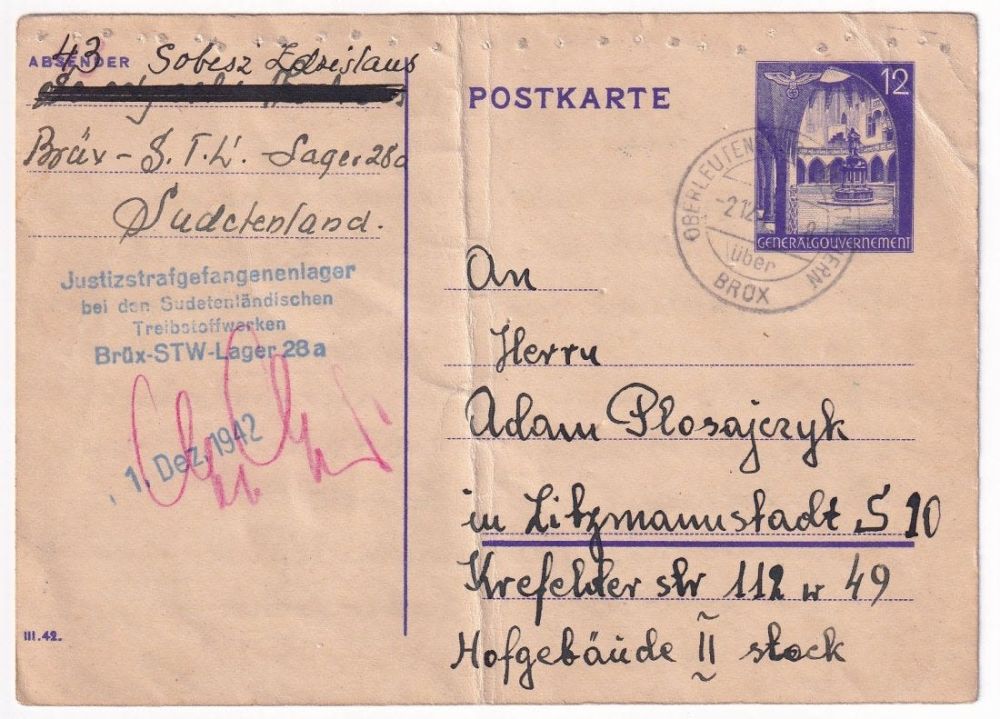 ABSENDER
43 Sobisz Zdzislaus
Brüx - S.T.W. Lager 28a
Sudetenland.
Justizstrafgefangenenlager
bei den Sudetenländischen
Treibstoffwerken
Brüx-STW-Lager 28a
1. Dez. 1942
III.42.
POSTKARTE
12
GENERALGOUVERNEMENT
-2.12.
über
BRÜX
An
Herrn
Adam Płosajczyk
in Litzmannstadt S 10
Krefelder str 112 w 49
Hofgebäude II stock